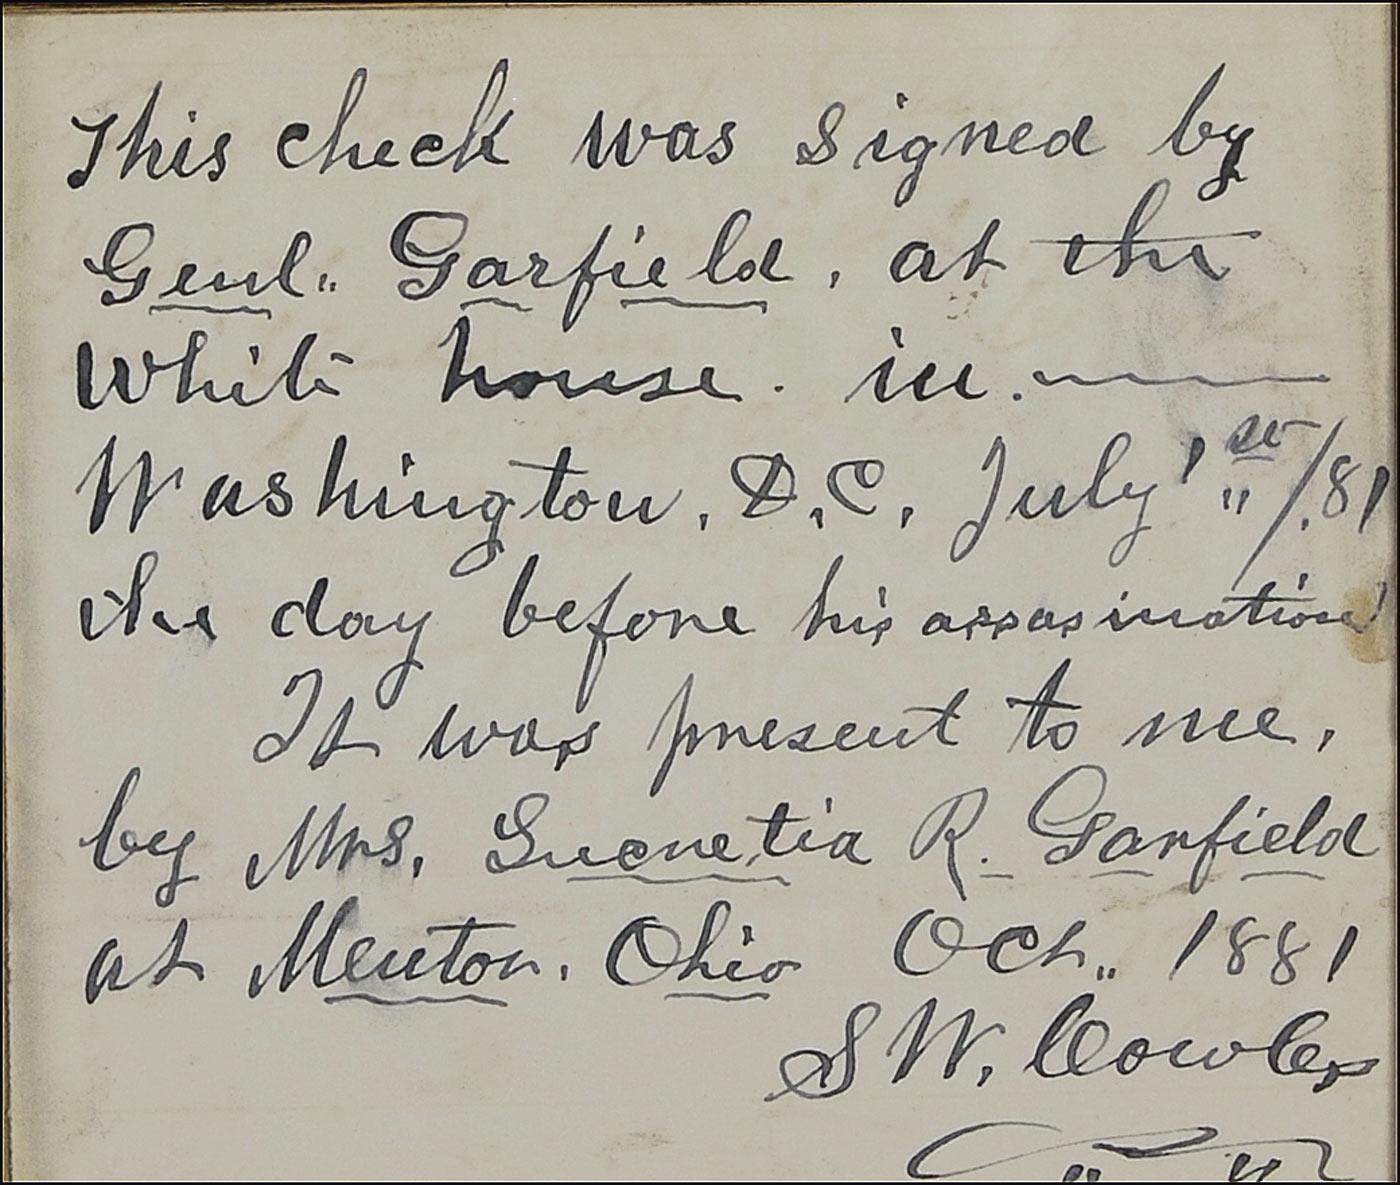 This check was signed by
Genl. Garfield, at the
White house. in.
Washington, D.C, July 1st/.81
the day before his assasination
It was present to me,
by Mrs. Lucretia R. Garfield
at Mentor. Ohio Oct. 1881
S W. Cowles